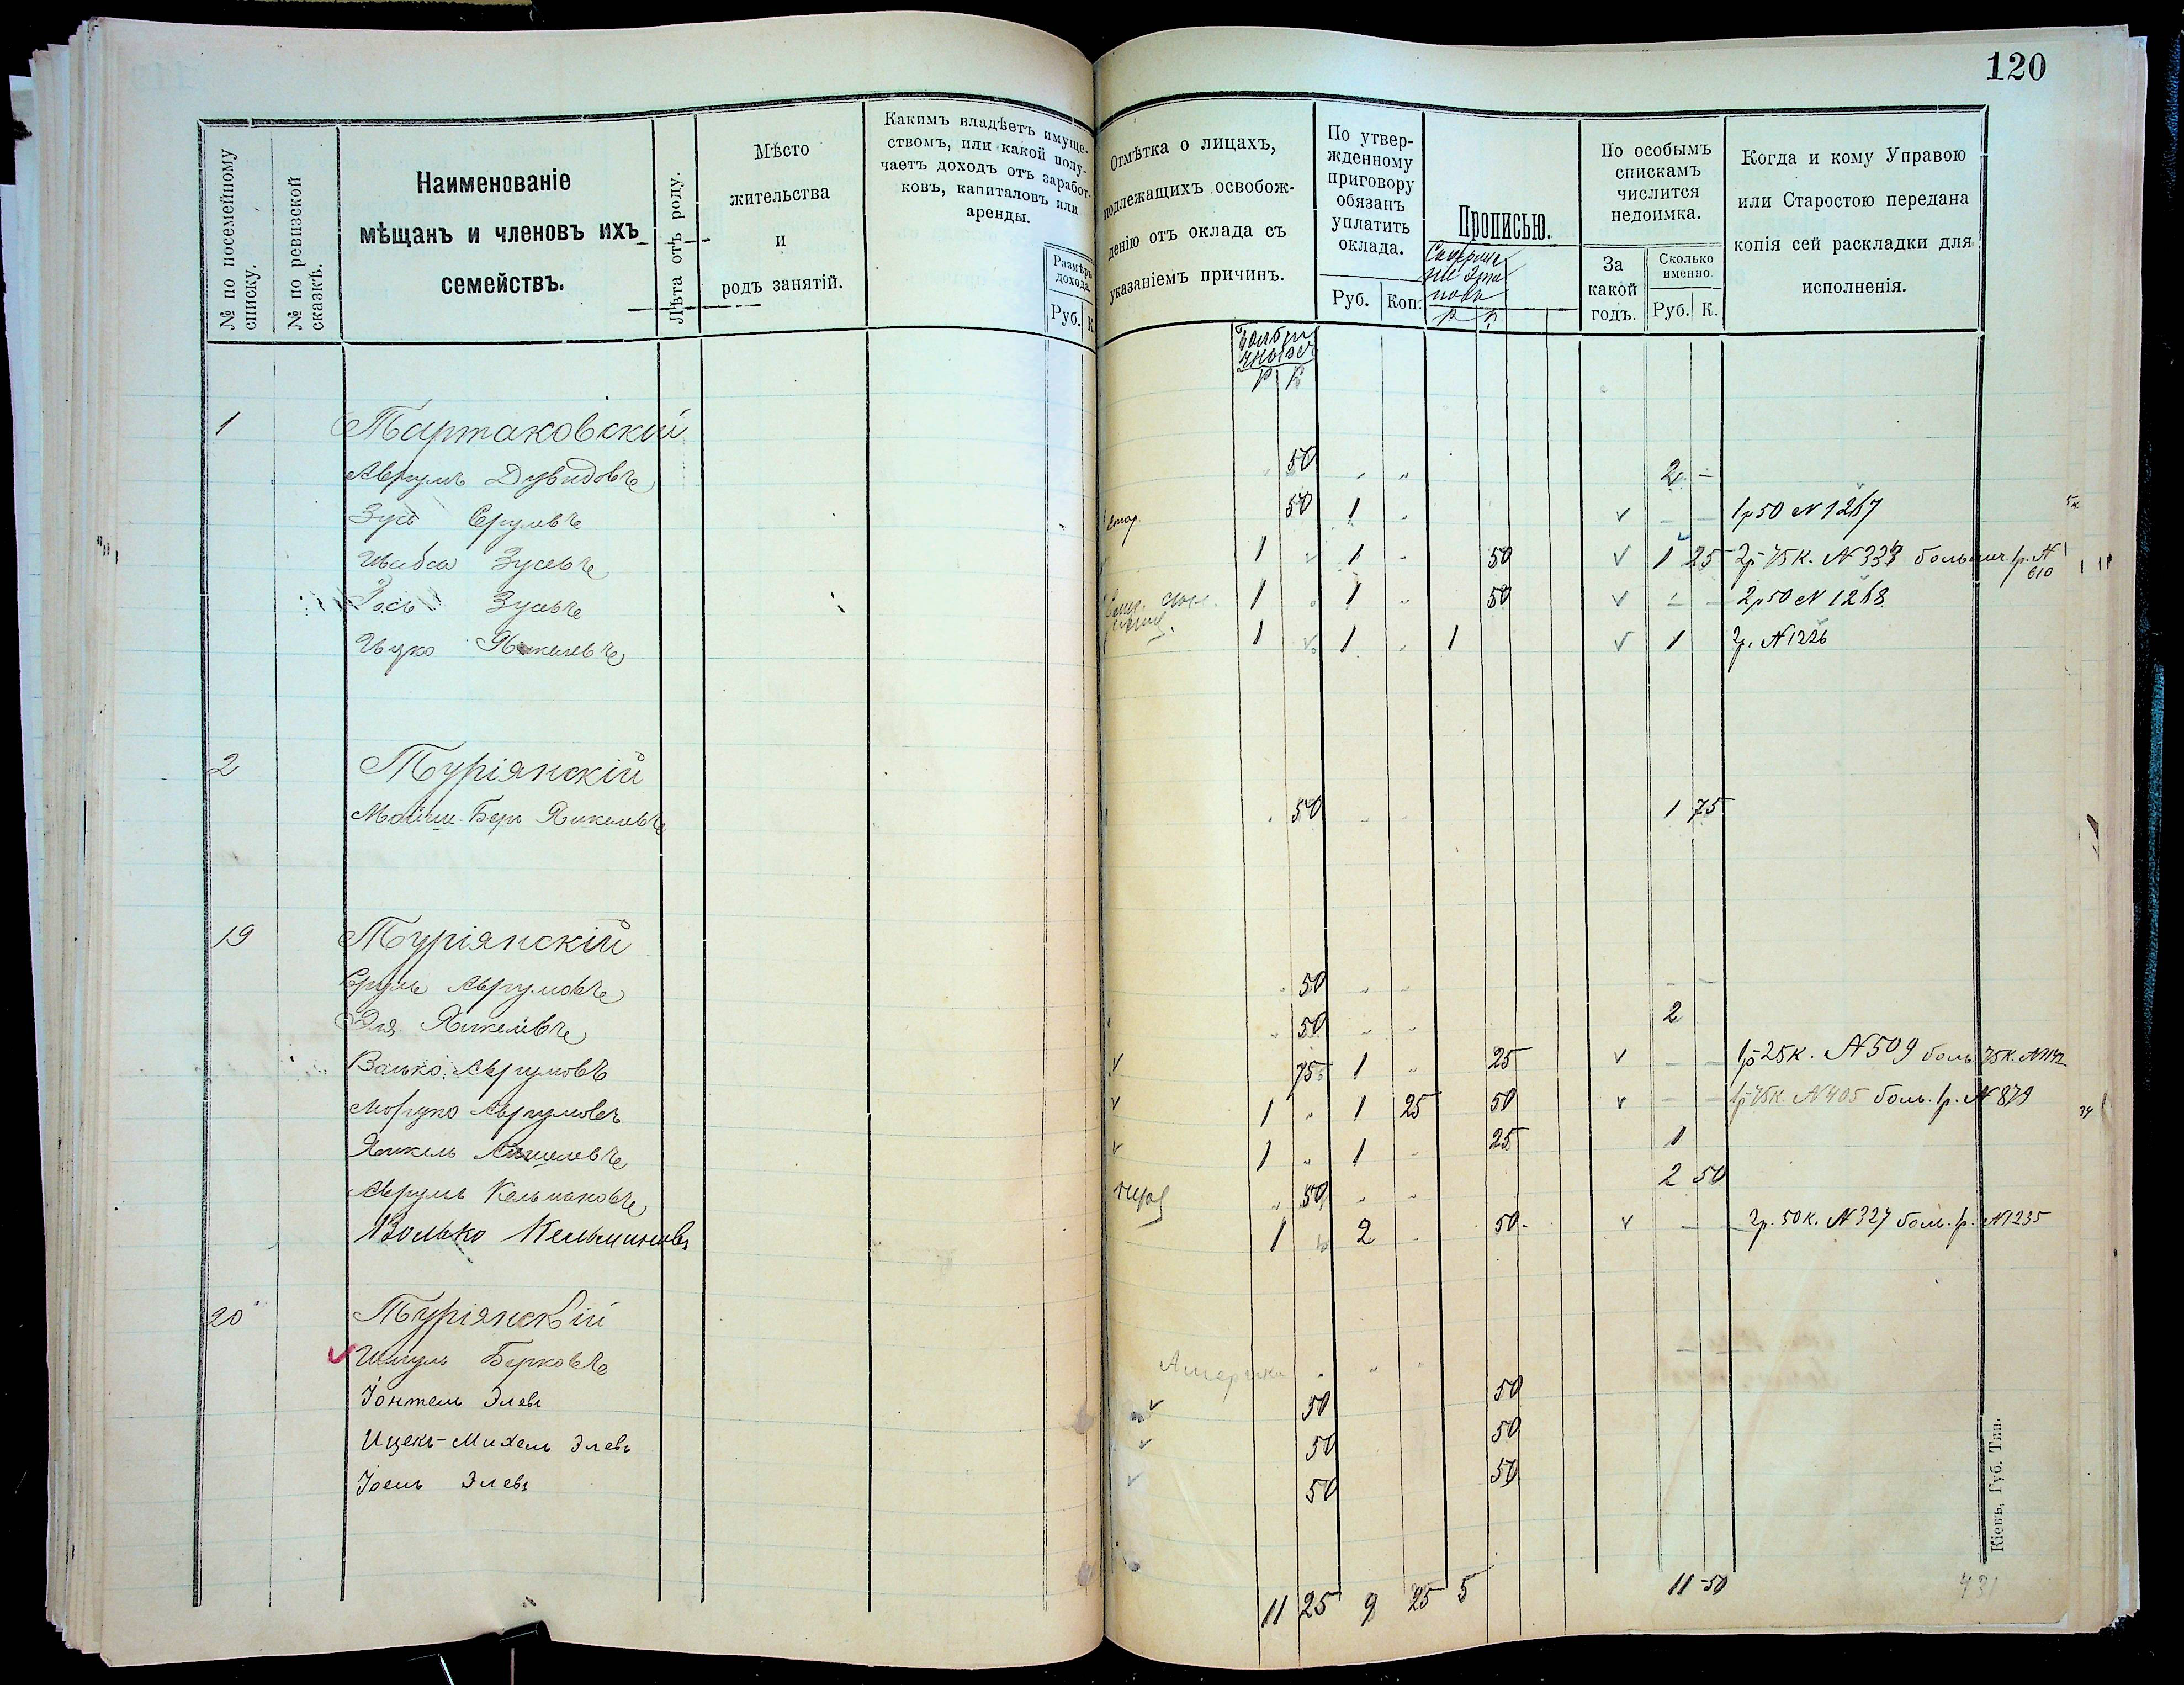 120
№ по посемейному списку.
№ по ревизской сказкѣ.
Наименованіе
мѣщанъ и членовъ ихъ
семействъ.
Лѣта отъ роду.
Мѣсто
жительства
и
родъ занятій.
Какимъ владѣетъ имуще-
ствомъ, или какой полу-
чаетъ доходъ отъ заработ-
ковъ, капиталовъ или
аренды.
Размѣръ
дохода.
Руб. К.
Отмѣтка о лицахъ,
подлежащихъ освобож-
денію отъ оклада съ
указаніемъ причинъ.
По утвер-
жденному
приговору
обязанъ
уплатить
оклада.
Руб. Коп.
Прописью.
По особымъ
спискамъ
числится
недоимка.
За
какой
годъ.
Сколько
именно.
Руб. К.
Когда и кому Управою
или Старостою передана
копія сей раскладки для
исполненія.
Р К
1 Тартаковскій
Аврумъ Дувидовъ 50 " " 2 -
Зусь Срулевъ 50 1 " v - - 1р 50 N 1267
Шабса Зусевъ 1 1 - 50 v 1 25 2р 75к. N 338 больнич. 1р. N 610
Іось Зусевъ 1 1 " 50 v - - 2р 50 N 1268
Ицко Янкелевъ 1 1 " 1 v 1 2р. N 1226
2 Туріянскій
Мошко-Беръ Янкелевъ 50 1 75
19 Туріянскій
Сруль Аврумовъ 50 - -
Эля Янкелевъ 50 2
Волько Аврумовъ v 75 1 " 25 v - - 1р 25к. N 509 боль. 75к. N 1142
Мордко Аврумовъ v 1 " 1 25 50 v - - 1р 75к. N 405 боль. 1р. N 879
Янкель Аншелевъ v 1 " 1 - 25 1
Аврумъ Кельмановъ " 50 " " 2 50
Волько Кельмановъ 1 2 - 50 v - 2р. 50к. N 327 боль. 1р. N 1235
20 Туріянскій
v Шмуль Берковъ Америка " "
Іонтель Элевъ v 50 50
Ицекъ-Михель Элевъ v 50 50
Іоель Элевъ v 50 50
11 25 9 25 5 11 50
Кіевъ, Губ. Тип.
431